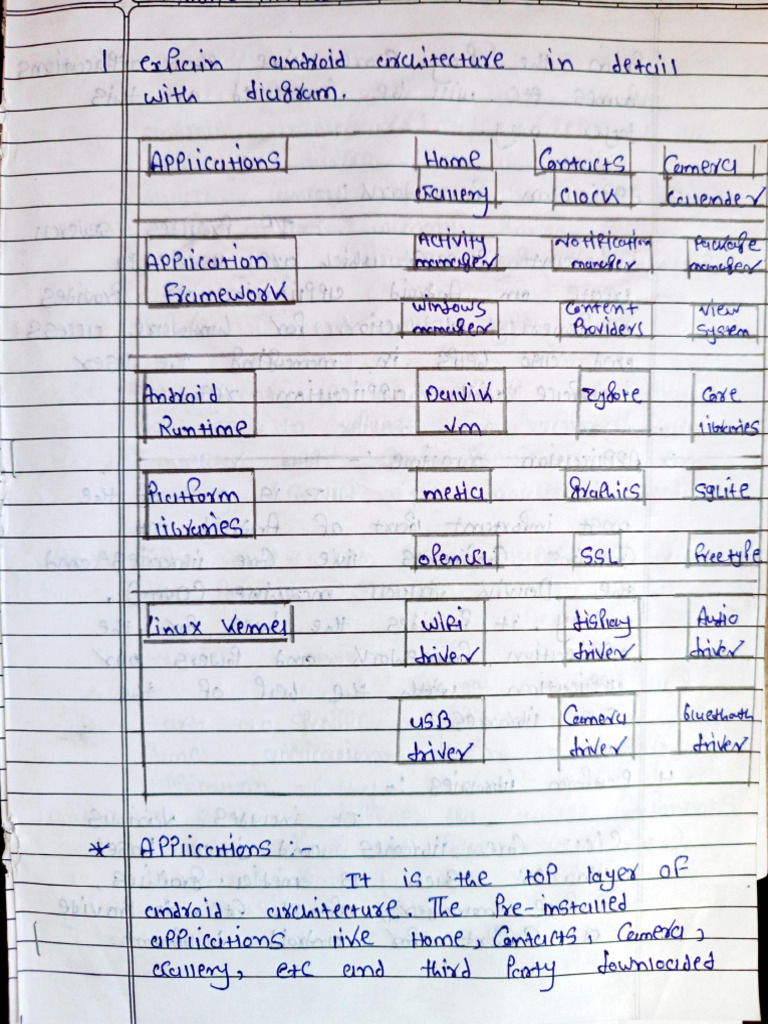 1 explain android architecture in detail
with diagram.
Applications Home Contacts Camera
Gallery Clock Callender
Application Activity Notification Package
Framework manager manager manager
Windows Content View
manager Providers System
Android Dalvik Zygote Core
Runtime vm libraries
Platform media Graphics SQlite
libraries
openGL SSL freetype
Linux Kernel WiFi display Audio
driver driver driver
USB Camera bluethoath
driver driver driver
* Applications :-
It is the top layer of
android architecture The Pre-installed
applications like Home, Contacts, Camera,
Gallery, etc and third Party downloaded